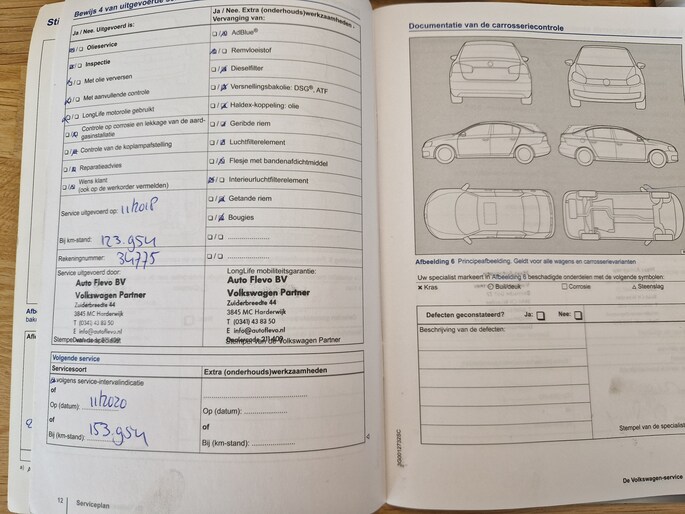 Bewijs 4 van uitgevoerde
Ja / Nee. Uitgevoerd is:
Olieservice
Inspectie
Met olie verversen
Met aanvullende controle
LongLife motorolie gebruikt
Controle op corrosie en lekkage van de aard-
gasinstallatie
Controle van de koplampafstelling
Reparatieadvies
Wens klant
(ook op de werkorder vermelden)
Service uitgevoerd op: 11/2018
Bij km-stand: 123.954
Rekeningnummer: 34775
Service uitgevoerd door:
Auto Flevo BV
Volkswagen Partner
Zuiderbreedte 44
3845 MC Harderwijk
T (0341) 43 83 50
E info@autoflevo.nl
Ja / Nee. Extra (onderhouds)werkzaamheden -
Vervanging van:
AdBlue®
Remvloeistof
Dieselfilter
Versnellingsbakolie: DSG®, ATF
Haldex-koppeling: olie
Geribde riem
Luchtfilterelement
Flesje met bandenafdichtmiddel
Interieurluchtfilterelement
Getande riem
Bougies
LongLife mobiliteitsgarantie:
Auto Flevo BV
Volkswagen Partner
Zuiderbreedte 44
3845 MC Harderwijk
T (0341) 43 83 50
E info@autoflevo.nl
Dealercode 211400
Stempel van de Volkswagen Partner
Volgende service
Servicesoort
volgens service-intervalindicatie
of
Op (datum): 11/2020
of
Bij (km-stand): 153.954
Extra (onderhouds)werkzaamheden
Op (datum):
of
Bij (km-stand):
12 Serviceplan
Documentatie van de carrosseriecontrole
Afbeelding 6 Principeafbeelding. Geldt voor alle wagens en carrosserievarianten
Uw specialist markeert in Afbeelding 6 beschadigde onderdelen met de volgende symbolen:
× Kras ○ Buil/deuk □ Corrosie △ Steenslag
Defecten geconstateerd? Ja: Nee:
Beschrijving van de defecten:
Stempel van de specialist
De Volkswagen-service